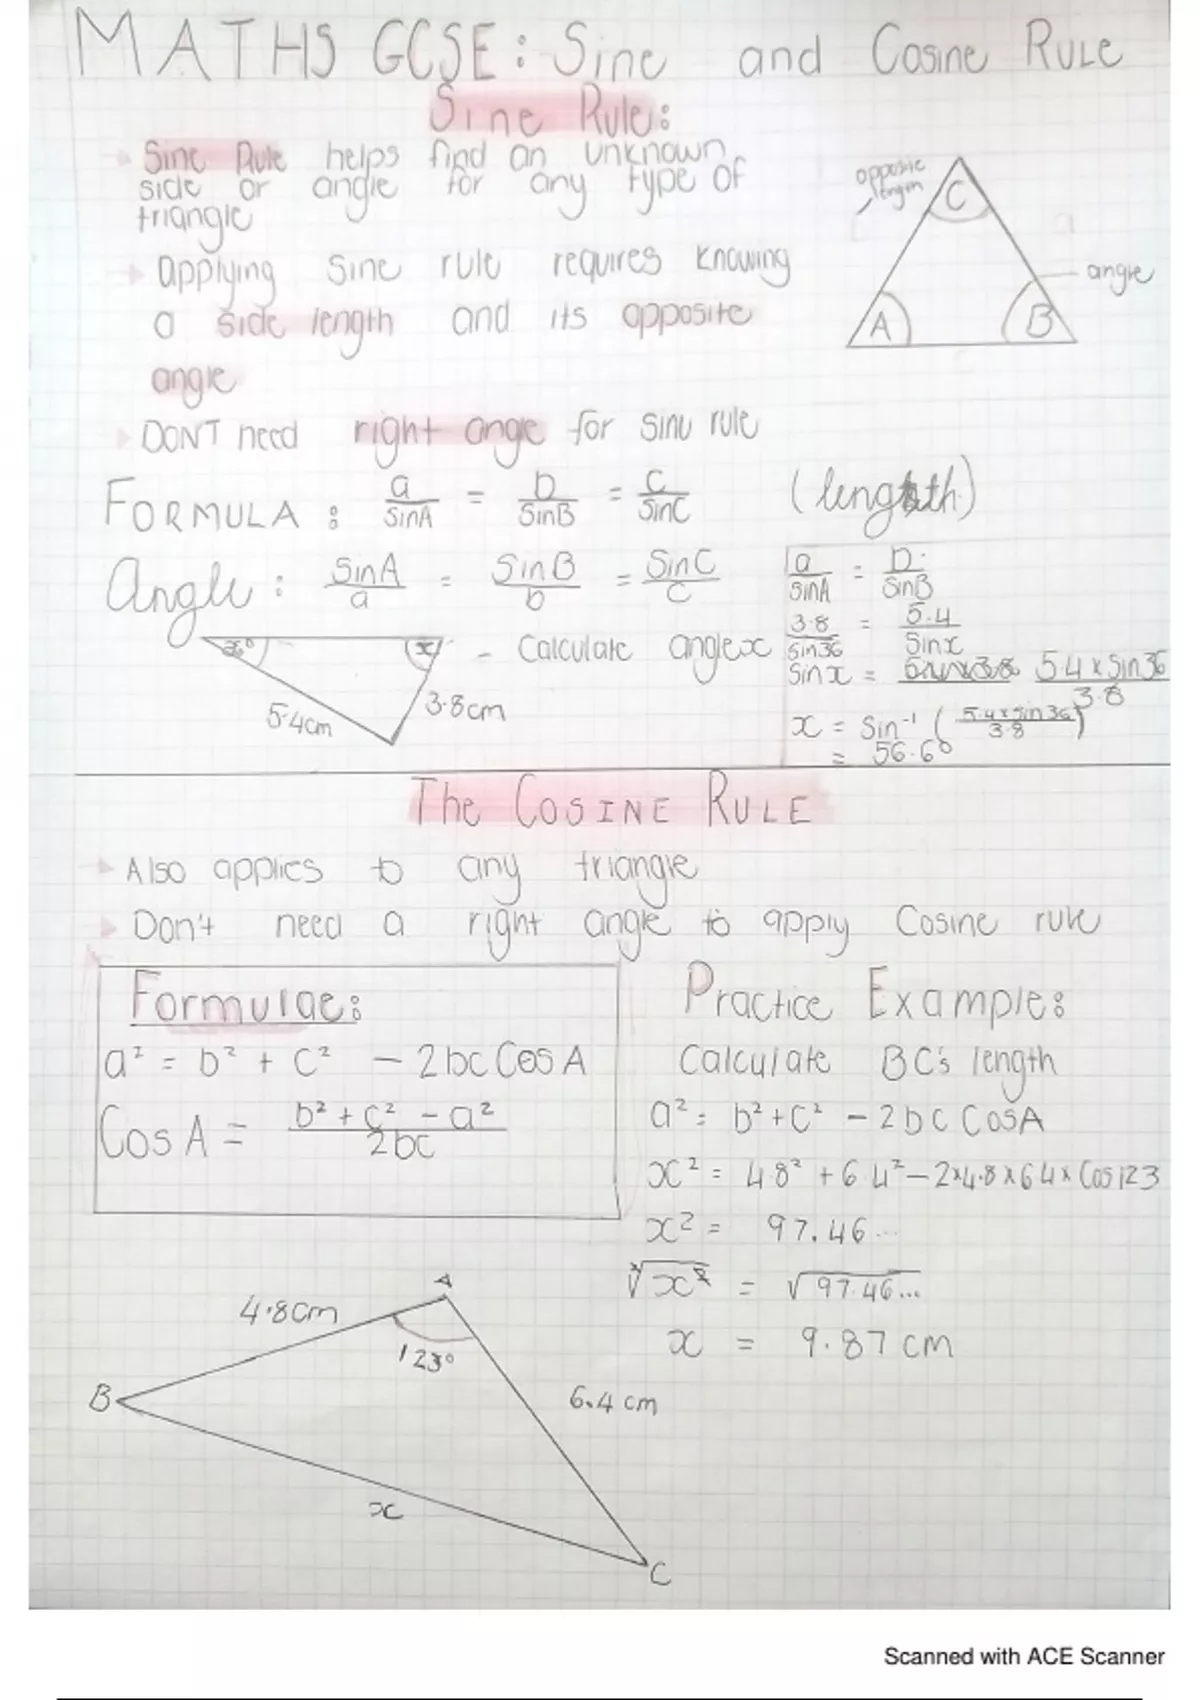 MATHS GCSE: Sine and Cosine RULE
Sine Rule:
Sine Rule helps find an unknown
side or angle for any type of
triangle
applying sine rule requires knowing
a side length and its opposite
angle
DON'T need right angle for sine rule
opposite
length
C
angle
A B
FORMULA: a/sinA = b/sinB = c/sinC (length)
Angle: sinA/a = sinB/b = sinC/c
x
5.4cm
3.8cm
- Calculate angle x
a/sinA = b/sinB
3.8/sin36 = 5.4/sinx
sinx = 5.4 x sin36/3.8
x = sin⁻¹ (5.4 x sin36/3.8)
= 56.6°
The COSINE RULE
Also applies to any triangle
Don't need a right angle to apply Cosine rule
Formulae:
a² = b² + c² - 2bc Cos A
Cos A = b² + c² - a²/2bc
Practice Example:
Calculate BC's length
a² = b² + c² - 2bc CosA
x² = 4.8² + 6.4² - 2x4.8x6.4x Cos123
x² = 97.46...
√x² = √97.46...
x = 9.87 cm
A
4.8cm
123°
B
6.4 cm
x
C
Scanned with ACE Scanner